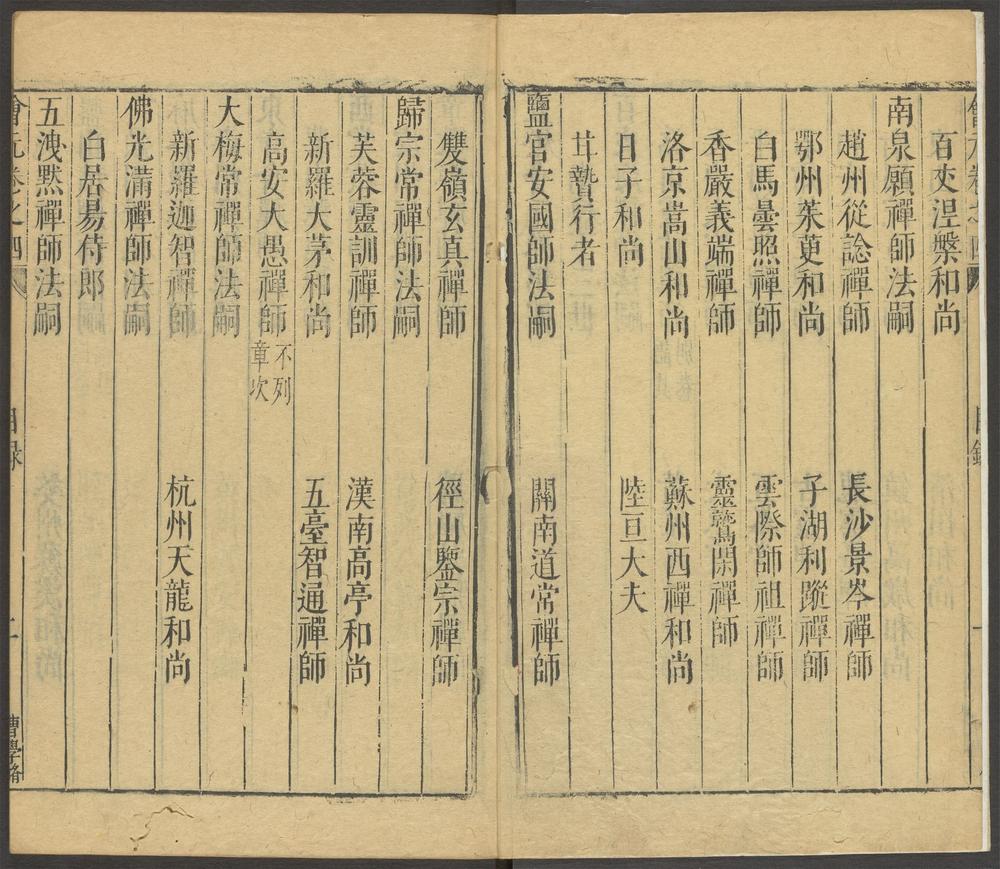 會元卷之四
目錄
百丈涅槃和尚
南泉願禪師法嗣
趙州從諗禪師 長沙景岑禪師
鄂州茱萸和尚 子湖利蹤禪師
白馬曇照禪師 雲際師祖禪師
香嚴義端禪師 靈鷲閑禪師
洛京嵩山和尚 蘇州西禪和尚
日子和尚 陸亘大夫
甘贄行者
鹽官安國師法嗣 關南道常禪師
雙嶺玄真禪師 徑山鑒宗禪師
歸宗常禪師法嗣
芙蓉靈訓禪師 漢南高亭和尚
新羅大茅和尚 五臺智通禪師
高安大愚禪師 不列章次
大梅常禪師法嗣
新羅迦智禪師 杭州天龍和尚
佛光滿禪師法嗣
白居易侍郎
五洩默禪師法嗣
會元卷之四 目錄 二